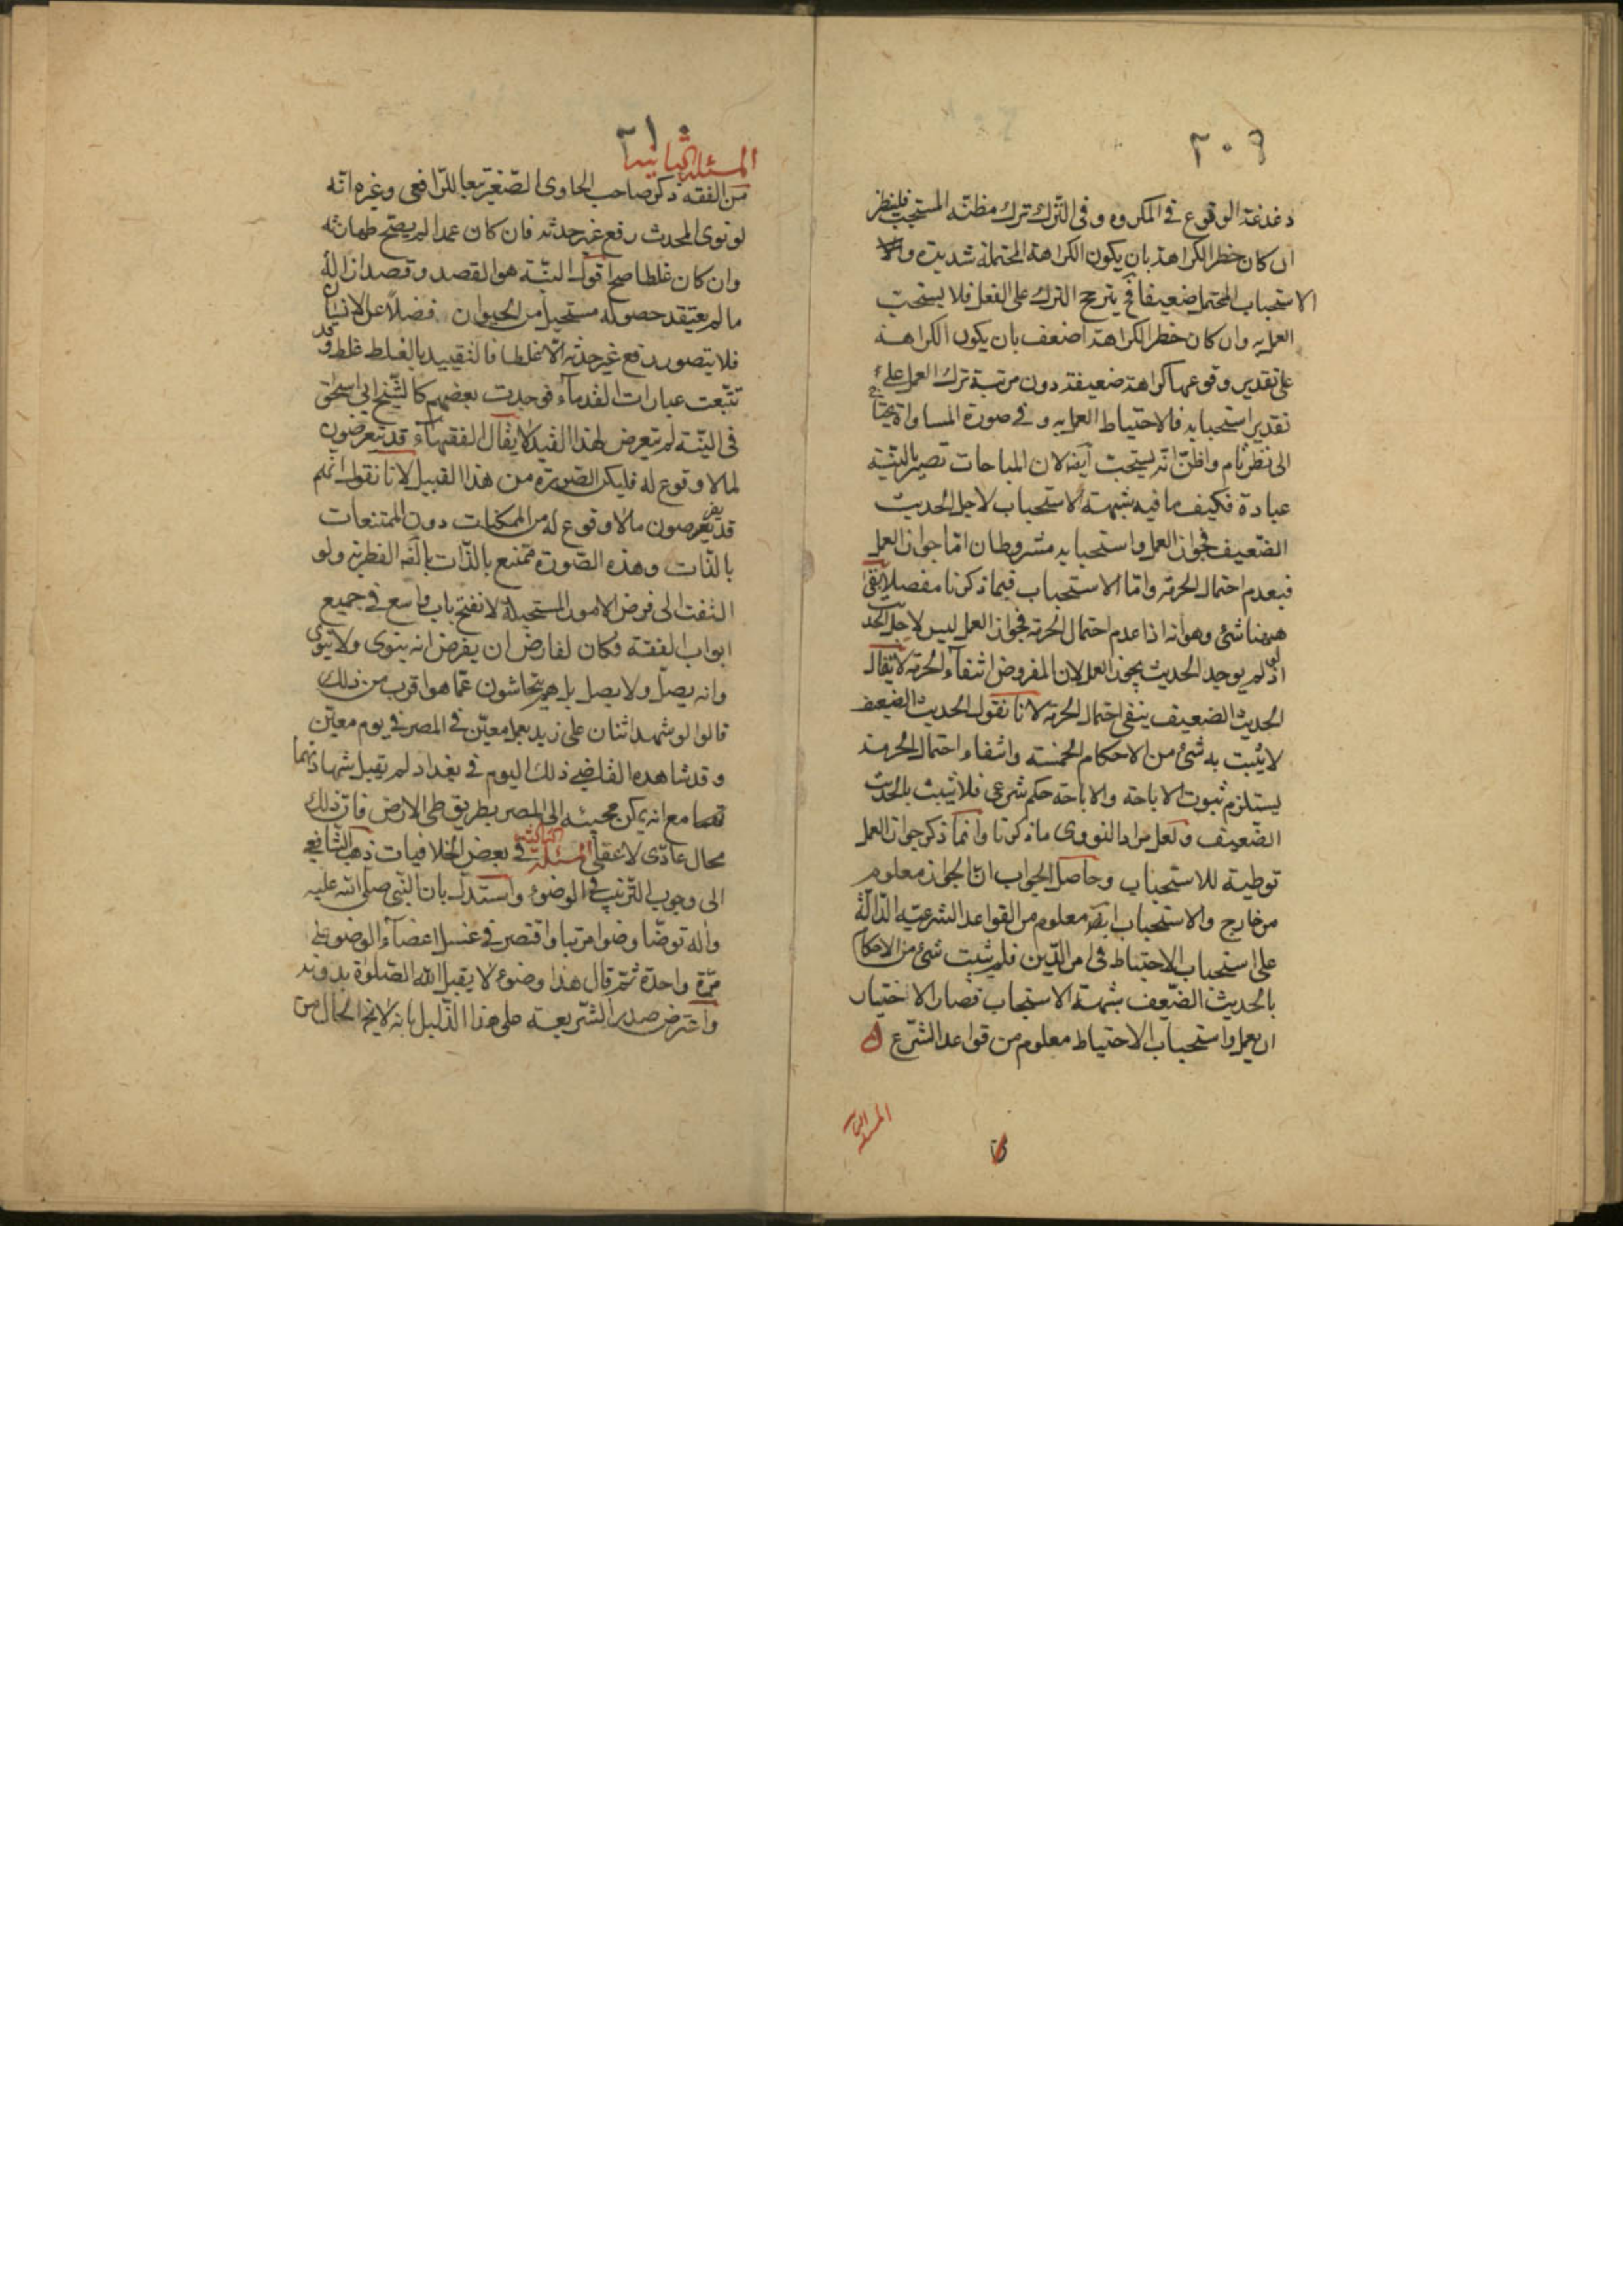 ٢٠٩
دغدغة الوقوع في المكروه وفي الترك ترك مظنة المستحب فلينظر
ان كان خطر الكراهة بان يكون الكراهة المحتملة شديدة والا
الاستحباب المحتمل ضعيفا فح يترجح الترك على الفعل فلا يستحب
العمل به وان كان خطر الكراهة اضعف بان يكون الكراهة
على تقدير وقوعها كراهة ضعيفة دون مرتبة ترك العمل على
تقدير استحبابه فالاحتياط العمل به وفي صورة المساواة يحتاج
الى نظر تام واظن انه يستحب ايضا لان المباحات تصير بالنية
عبادة فكيف ما فيه شبهة الاستحباب لاجل الحديث
الضعيف فجواز العمل واستحبابه مشروطان اما جواز العمل
فبعدم احتمال الحرمة واما الاستحباب فيما ذكرنا مفصلا بقى
ههنا شئ وهو انه اذا عدم احتمال الحرمة فجواز العمل ليس لاجل الحديث
اذ لو لم يوجد الحديث يجوز العمل لان المفروض انتفاء الحرمة لا يقال
الحديث الضعيف ينفى احتمال الحرمة لانا نقول الحديث الضعيف
لا يثبت به شئ من الاحكام الخمسة وانتفاء احتمال الحرمة
يستلزم ثبوت الاباحة والاباحة حكم شرعي فلا يثبت بالحديث
الضعيف ولعل مراد النووى ما ذكرنا وانما ذكر جواز العمل
توطية للاستحباب وحاصل الجواب ان الجواز معلوم
من خارج والاستحباب ايضا معلوم من القواعد الشرعية الدالة
على استحباب الاحتياط في امر الدين فلم يثبت شئ من الاحكام
بالحديث الضعيف شبهة الاستحباب فصار الاختيار
ان يعمل واستحباب الاحتياط معلوم من قواعد الشرع
٢١٠
المسئلة الثانية
من الفقه ذكر صاحب الحاوى الصغير تبعا للرافعى وغيره انه
لو نوى المحدث رفع غير حدثه فان كان عمدا لم يصح طهارته
وان كان غلطا صح اقول النية هو القصد وقصد ازالة
ما لم يعتقد حصوله مستحيل من الحيوان فضلا عن الانسان
فلا يتصور رفع غير حدثه الا غلطا فالتقييد بالغلط غلط وقد
تتبعت عبارات القدماء فوجدت بعضهم كالشيخ ابي اسحق
في النية لم يتعرض لهذا القيد لا يقال الفقهاء قد يتعرضون
لما لا وقوع له فليكن الصورة من هذا القبيل لانا نقول انهم
قد يفرضون ما لا وقوع له من الممكنات دون الممتنعات
بالذات وهذه الصورة ممتنع بالذات بالفه الفطرية ولو
التفت الى فرض الامور المستحيلة لانفتح باب واسع في جميع
ابواب الفقه فكان لفارض ان يفرض انه ينوى ولا ينوى
وانه يصل ولا يصل بل هم يتحاشون عما هو اقرب من ذلك
قالوا لو شهد اثنان على زيد بعمل معين في المصر في يوم معين
وقد شاهده القاضي ذلك اليوم في بغداد لم تقبل شهادتهما
قصا مع انه يمكن مجيئه الى المصر بطريق طى الارض فان ذلك
محال عادى لا عقلى المسئلة الثالثة في بعض الخلافيات ذهب الشافعي
الى وجوب الترتيب في الوضوء واستدل بان النبى صلى الله عليه
واله توضأ وضوا مرتبا واقتصر في غسل اعضاء الوضوء على
مرة واحدة ثم قال هذا وضوء لا يقبل الله الصلوة بدونه
واعترض صدر الشريعة على هذا الدليل بانه لا يخ الحال من